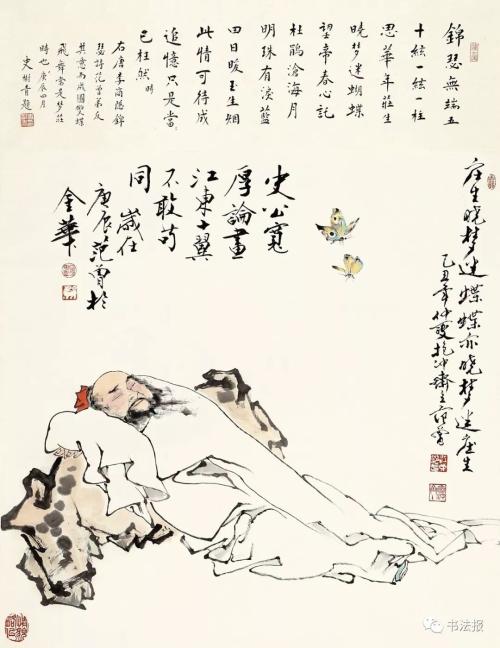 錦瑟無端五
十絃一絃一柱
思華年莊生
曉梦迷蝴蝶
望帝春心託
杜鵑滄海月
明珠有淚藍
田日暖玉生烟
此情可待成
追憶只是當
已枉然 時
右唐李商隱錦
瑟詩范曾弟反
其意而成圖雙蝶
飛舞當是梦莊
時也 庚辰四月
史樹青題
庄生曉梦迷蝶蝶亦曉梦迷庄生
乙丑年仲夏抱冲斋主范曾
史公寬
厚論畫
江東十翼
不敢苟
同 歲在
庚辰范曾於
金華
书法报